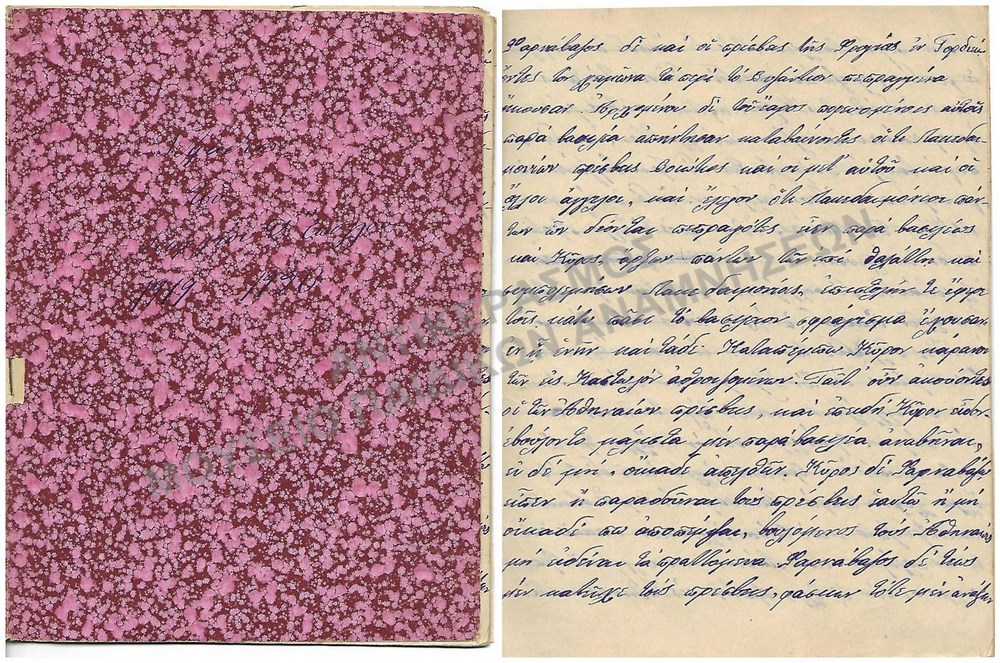 1919 1920
Φαρνάβαζος δὲ καὶ οἱ πρέσβεις τῆς Φρυγίας ἐν Γορδιείῳ
ὄντες τὸν χειμῶνα τὰ περὶ τὸ Βυζάντιον πεπραγμένα
ἤκουσαν. Ἀρχομένου δὲ τοῦ ἔαρος πορευομένοις αὐτοῖς
παρὰ βασιλέα ἀπήντησαν καταβαίνοντες οἵ τε Λακεδαι-
μονίων πρέσβεις Βοιώτιος καὶ οἱ μετ' αὐτοῦ καὶ οἱ
ἄλλοι ἄγγελοι, καὶ ἔλεγον ὅτι Λακεδαιμόνιοι πάν-
των ὧν δέονται πεπραγότες εἶεν παρὰ βασιλέως
καὶ Κῦρος, ἄρξων πάντων τῶν ἐπὶ θαλάττῃ καὶ
συμπολεμήσων Λακεδαιμονίοις, ἐπιστολήν τε ἔφερε
τοῖς κάτω πᾶσι τὸ βασίλειον σφράγισμα ἔχουσαν
ἐν ᾗ ἐνῆν καὶ τάδε· Καταπέμπω Κῦρον κάρανον
τῶν εἰς Καστωλὸν ἀθροιζομένων. Ταῦτ' οὖν ἀκούοντες
οἱ τῶν Ἀθηναίων πρέσβεις, καὶ ἐπειδὴ Κῦρον εἶδον
ἐβούλοντο μάλιστα μὲν παρὰ βασιλέα ἀναβῆναι,
εἰ δὲ μή, οἴκαδε ἀπελθεῖν. Κῦρος δὲ Φαρναβάζῳ
εἶπεν ἢ παραδοῦναι τοὺς πρέσβεις ἑαυτῷ ἢ μὴ
οἴκαδέ πω ἀποπέμψαι, βουλόμενος τοὺς Ἀθηναίους
μὴ εἰδέναι τὰ πραττόμενα. Φαρνάβαζος δὲ τέως
μὲν κατεῖχε τοὺς πρέσβεις, φάσκων τότε μὲν ἀνάξειν
ΑΝΤΙΚΕΡΑΣΜΟΣ
ΜΟΥΣΕΙΟ ΠΑΙΔΙΚΩΝ ΑΝΑΜΝΗΣΕΩΝ